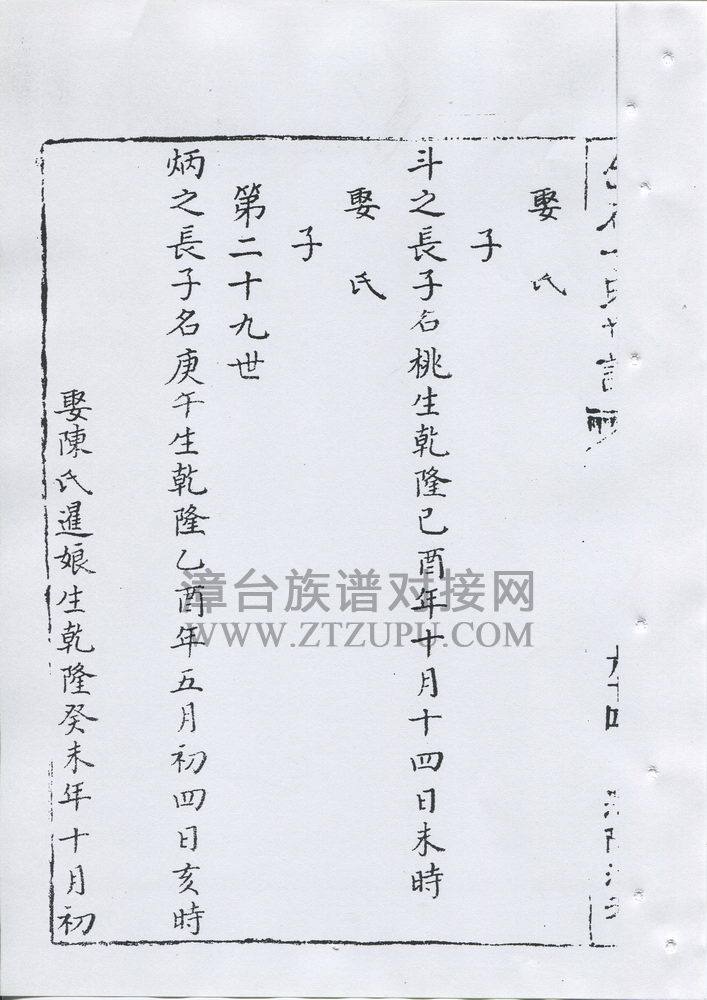 娶 氏
子
斗之長子名桃生乾隆己酉年十月十四日未時
娶 氏
子
第二十九世
炳之長子名庚午生乾隆乙酉年五月初四日亥時
娶陳氏暹娘生乾隆癸未年十月初
漳台族谱对接网
WWW.ZTZUPU.COM